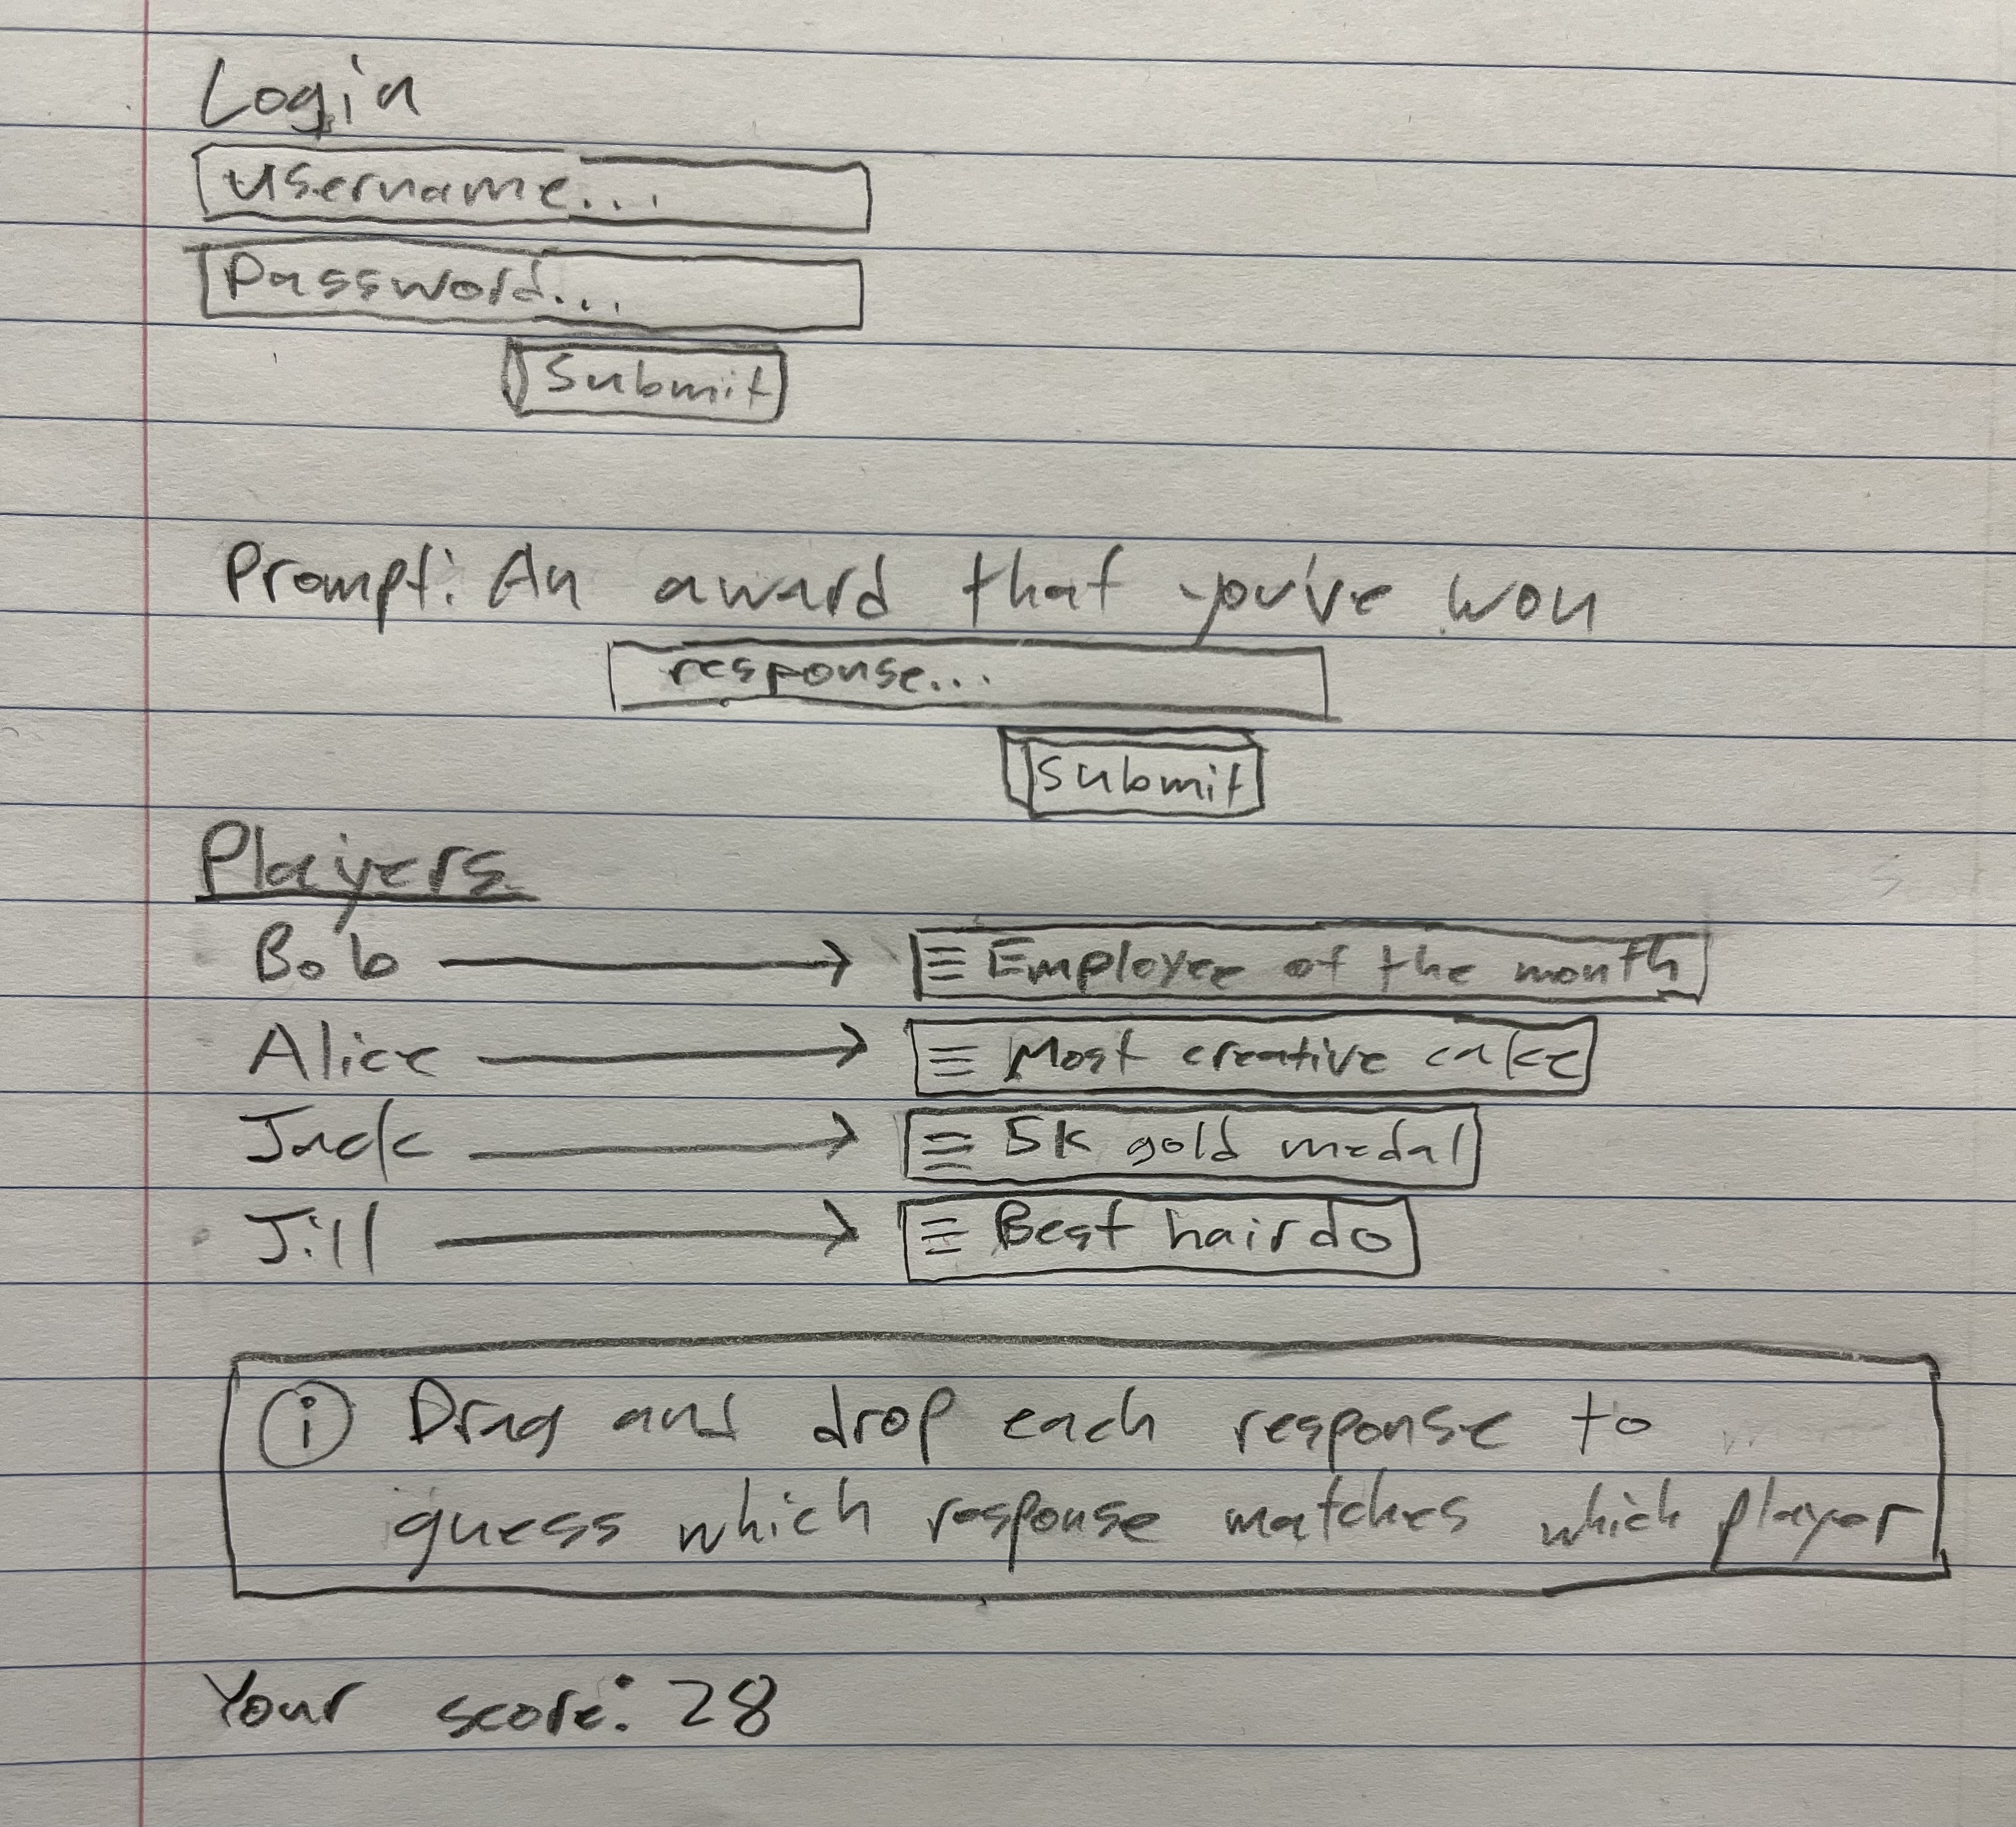 Login
username...
Password...
Submit
Prompt: An award that you've won
response...
Submit
Players
Bob → ≡ Employee of the month
Alice → ≡ Most creative cake
Jack → ≡ 5K gold medal
Jill → ≡ Best hairdo
ⓘ Drag and drop each response to
guess which response matches which player
Your score: 28